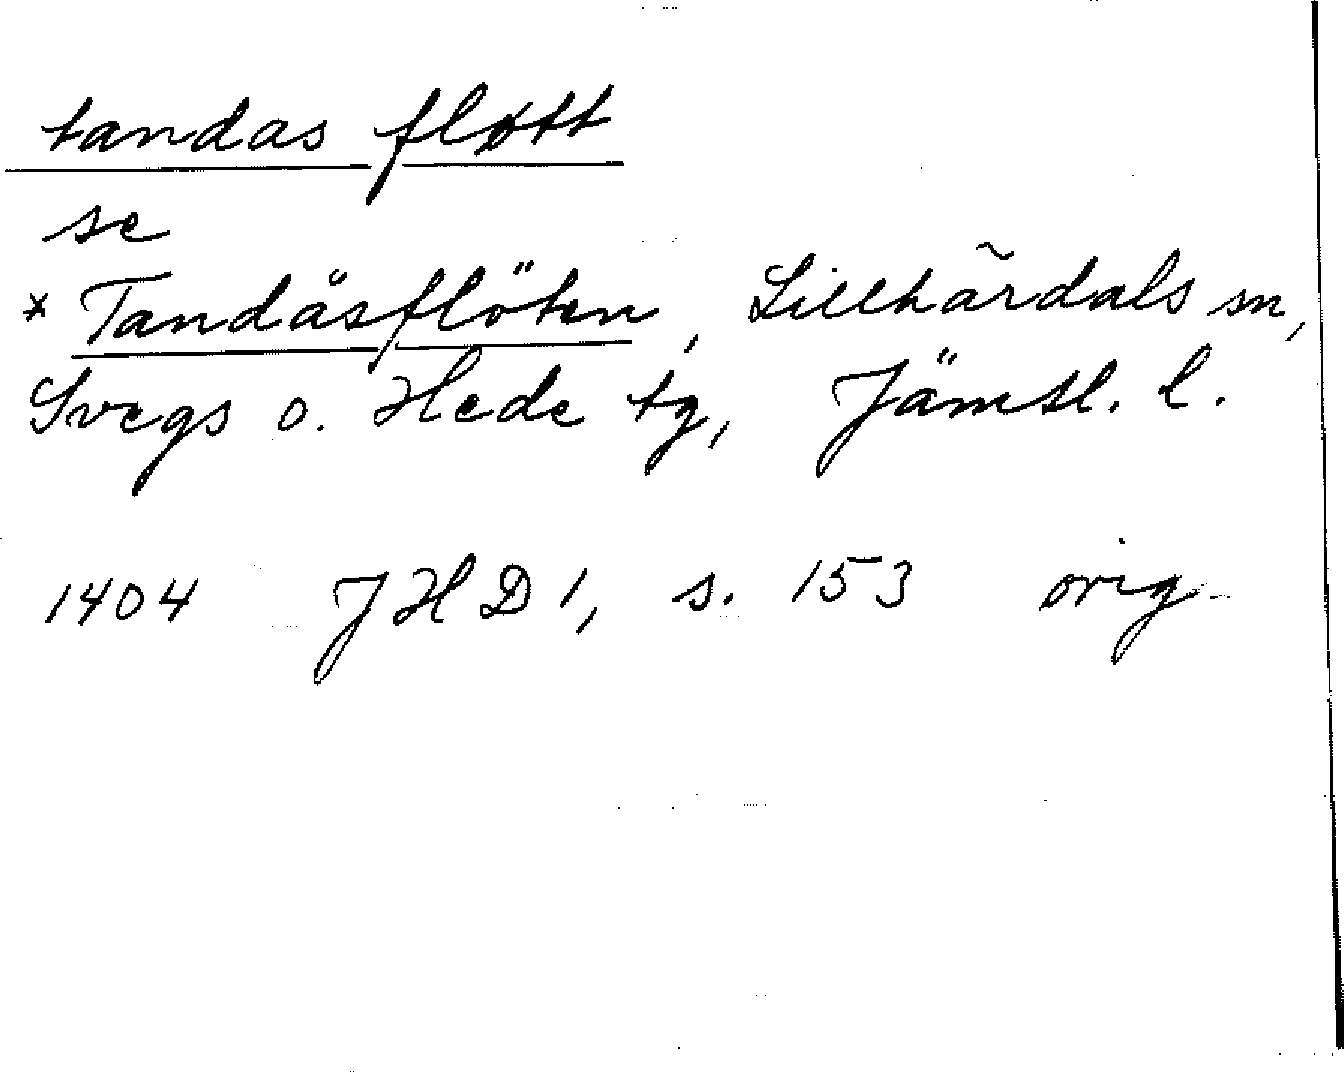 tandas fløtt
se
* Tandåsflöten, Lillhärdals sn,
Svegs o. Hede tg, Jämtl. l.
1404 JHD 1, s. 153 orig